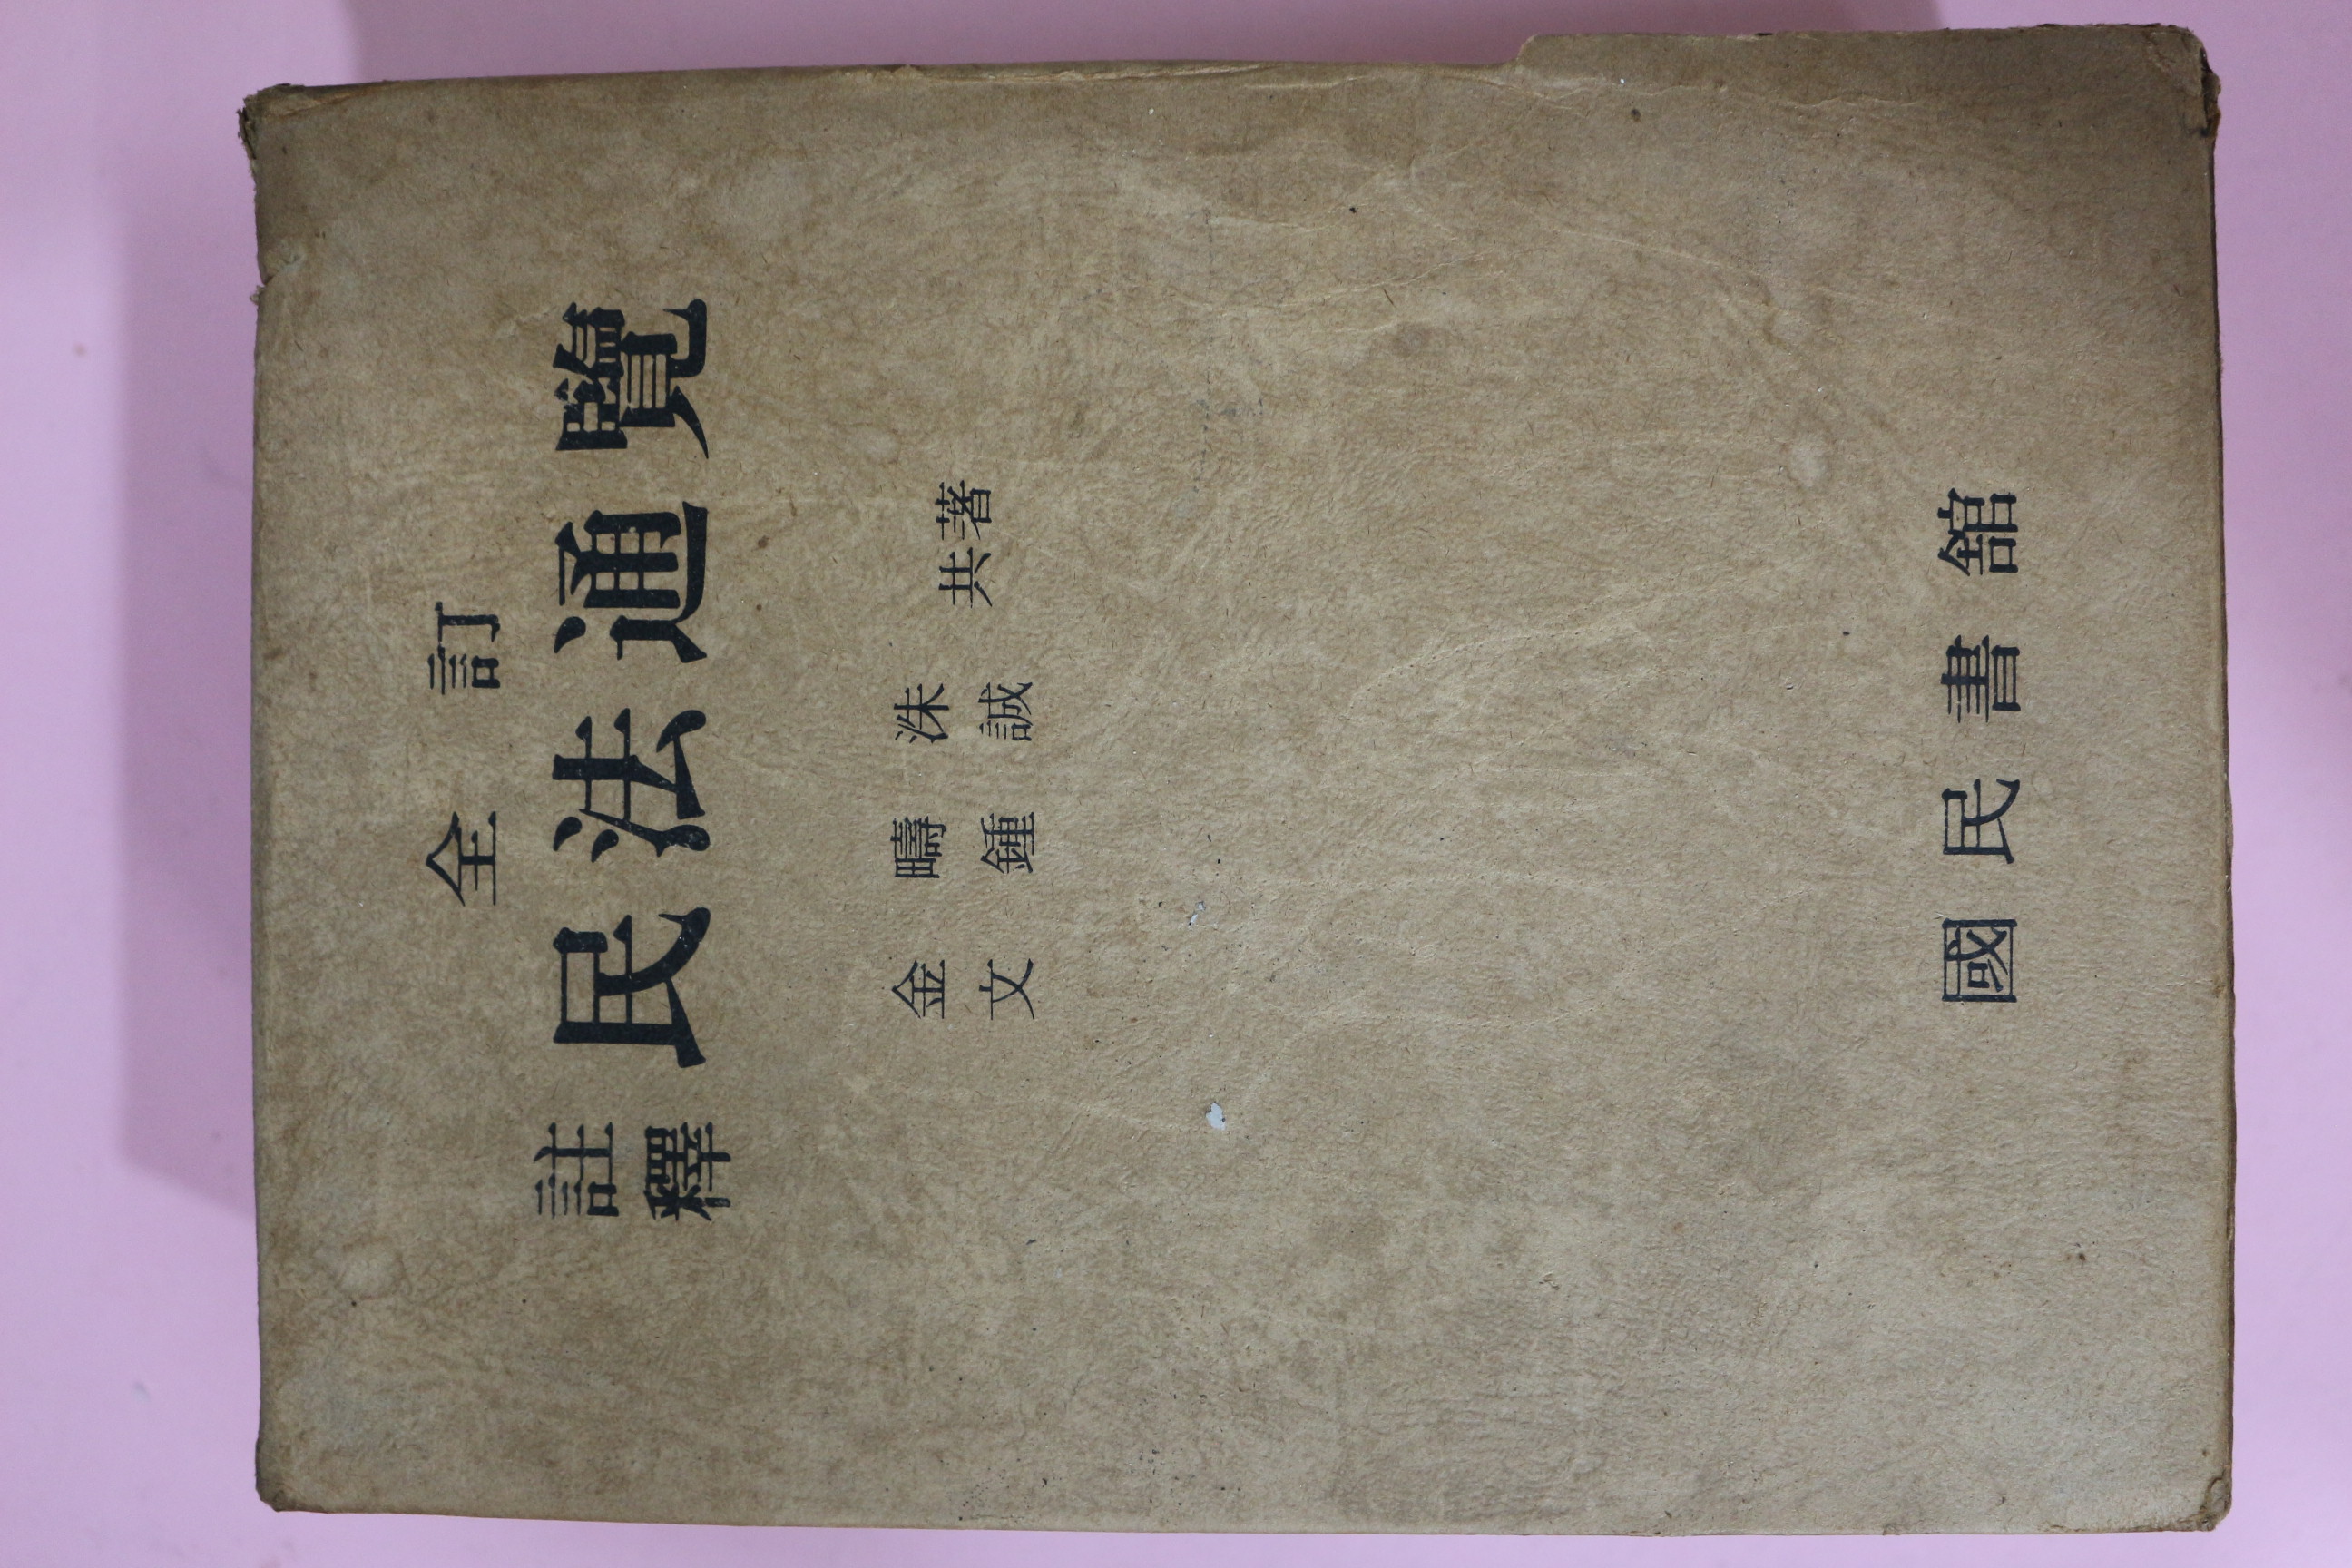 全訂
註釋 民法通覽
金疇洙
文鍾誠 共著
國民書舘